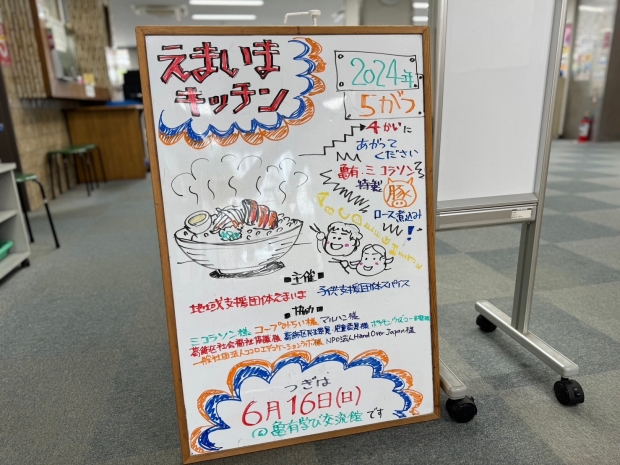 えまいま
キッチン
2024年
5がつ
4かいに
あがって
ください
亀有・ミコラソン
特製
豚
ロース煮込み
!
ABCD
主催
地域支援団体えまいま 子供支援団体スパイス
協力
ミコラソン様、コープみらい様、マルハン様
葛飾区社会福祉協議様、葛飾区民生委員・児童委員様、
一般社団法人ココロエデュケーションラボ様、NPO法人Hand Over Japan様
つぎは
6月16日(日)
@亀有学び交流館です